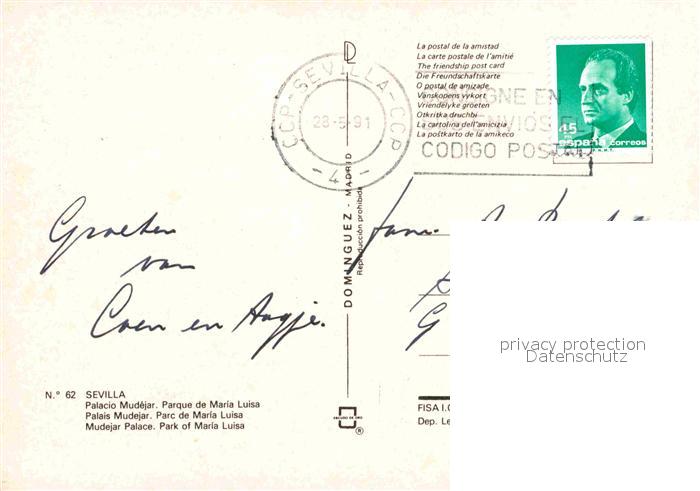 La postal de la amistad
La carte postale de l'amitié
The friendship post card
Die Freundschaftskarte
O postal de amizade
Vänskopens vykort
Vriendelÿke groeten
Otkritka druchbi
La cartolina dell'amicizia
La poŝtkarto de la amikeco
CCP-SEVILLA-CCP
28-5-91
-4-
EN
ENVIOS EL
CODIGO POSTAL
45
españa correos
Groeten
van
Coen en Augje.
DOMINGUEZ - MADRID
Reproducción prohibida
Fam.
G
privacy protection
Datenschutz
N.° 62 SEVILLA
Palacio Mudéjar. Parque de María Luisa
Palais Mudejar. Parc de María Luisa
Mudejar Palace. Park of María Luisa
ESCUDO DE ORO
®
FISA I.G
Dep. Le